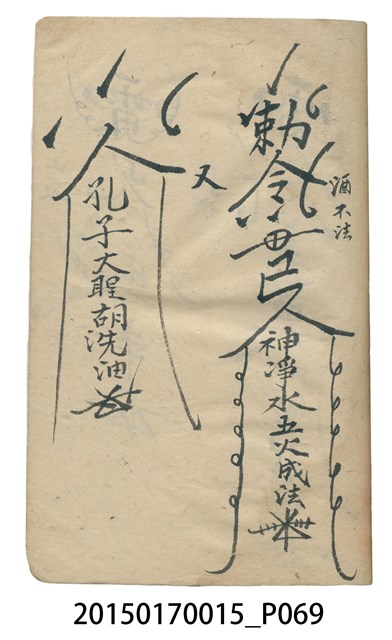 酒不法
勅令
神淨水五火成法
又
孔子大聖胡洗油
20150170015_P069